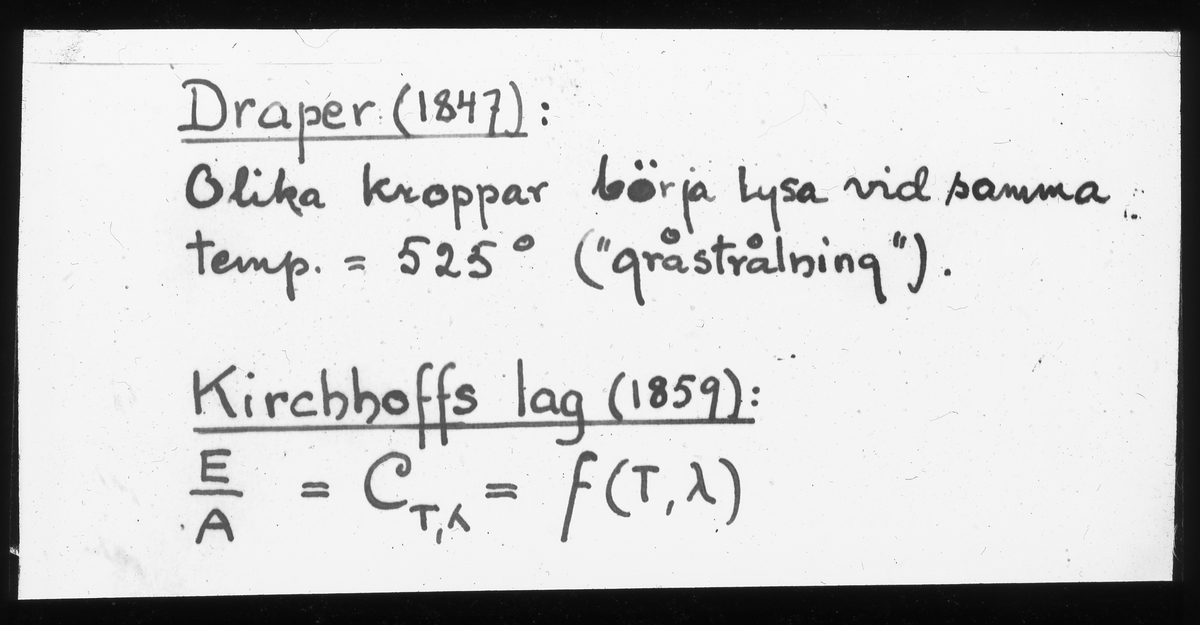 Draper (1847):
Olika kroppar börja lysa vid samma
temp. = 525° ("gråstrålning").
Kirchhoffs lag (1859):
E/A = C_T,λ = f(T,λ)